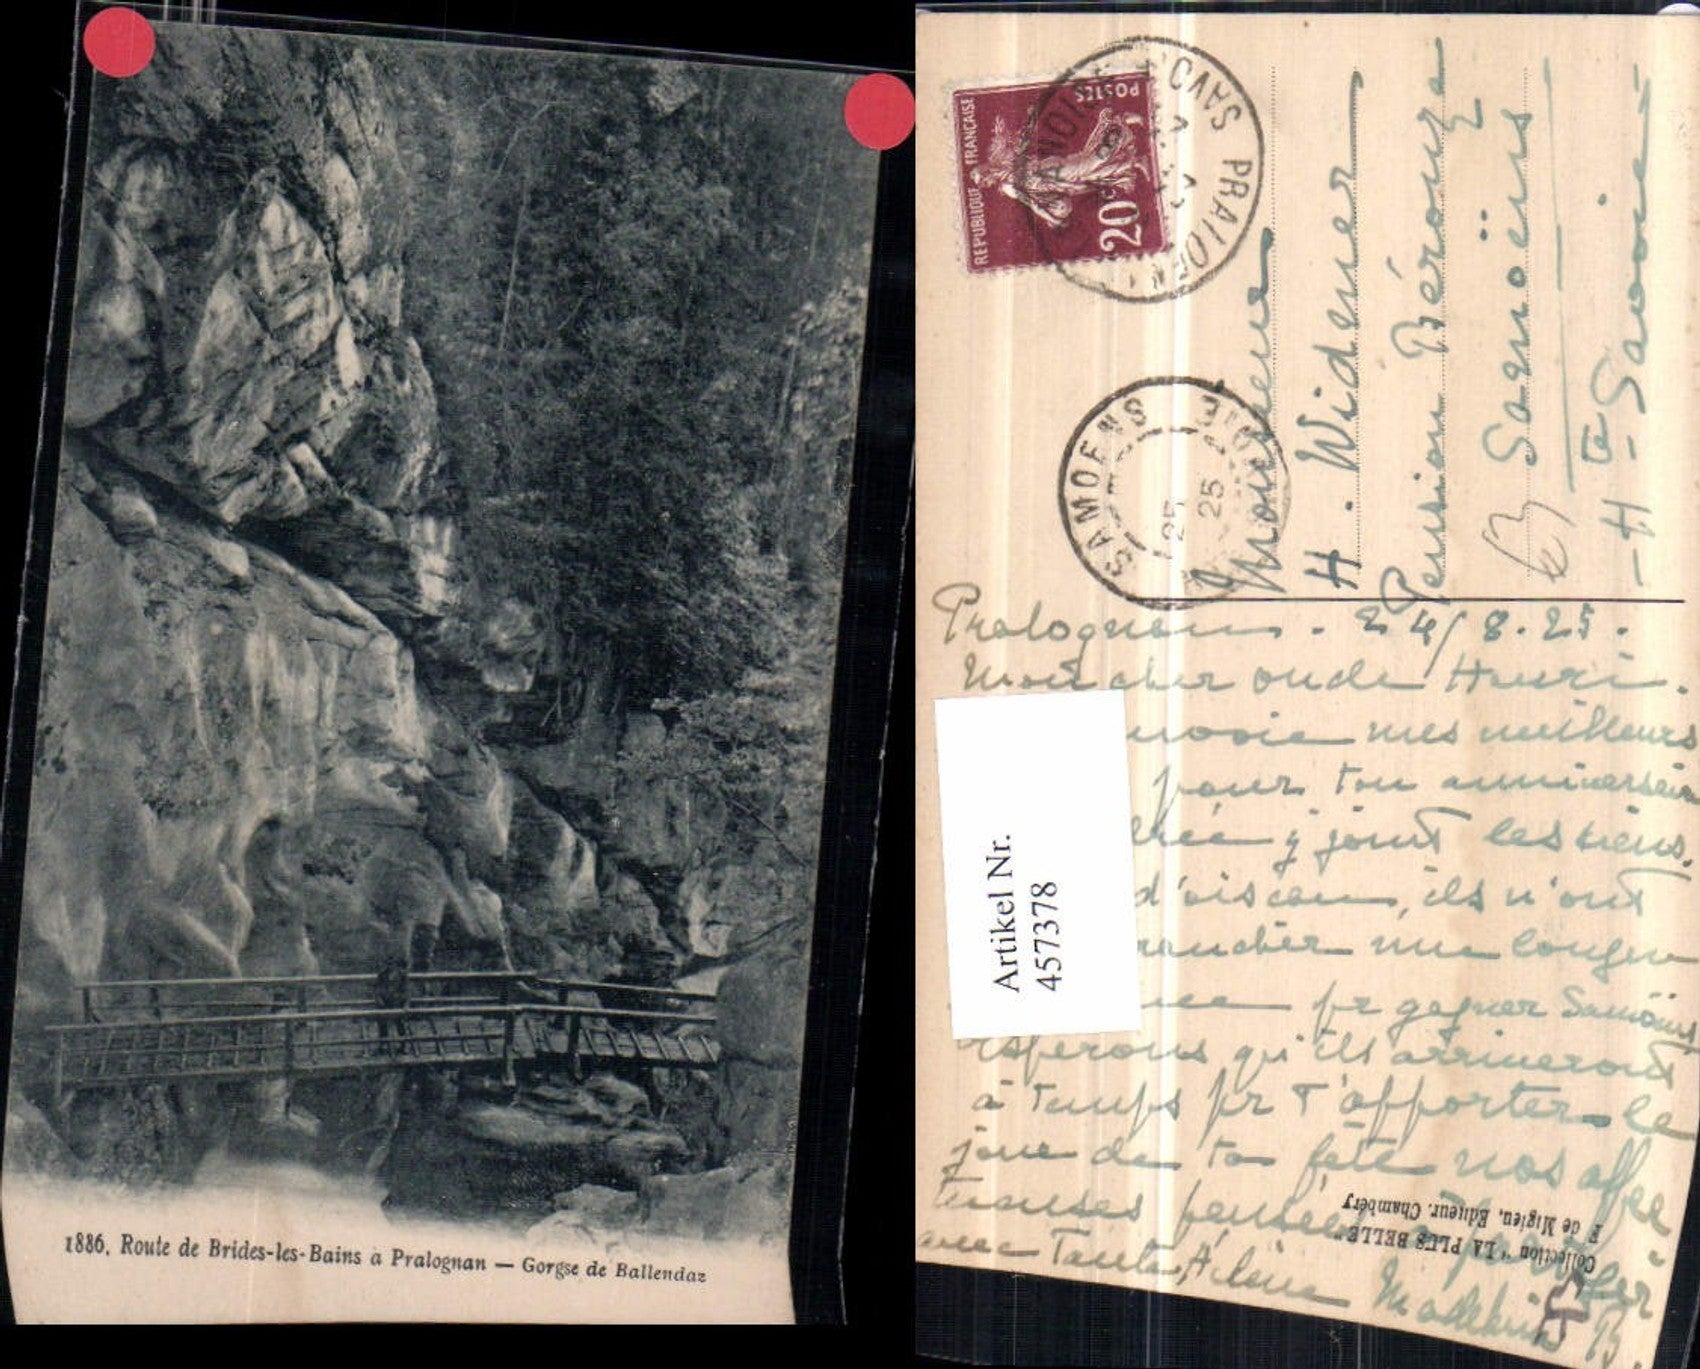 1886. Route de Brides-les-Bains à Pralognan — Gorgse de Ballendaz
REPUBLIQUE FRANCAISE
POSTES
20c
SAMOENS
25
25
Monsieur
H. Widemer
Pension Bérouze
Samoëns
Hte Savoie
Artikel Nr.
457378
Pralognan. 24/8.25.
Mon cher oncle Henri.
mes meilleurs
pour ton
y joint les siens.
d'oiseau, ils n'ont
une longue
pr gagner Samoëns
espérons qu'ils arriveront
à temps pr t'apporter le
jour de ta fête nos affec
tueuses pensées
avec Tante Aline Madeleine
Collection "LA PLUS BELLE"
F. de Migieu, Editeur. Chambéry